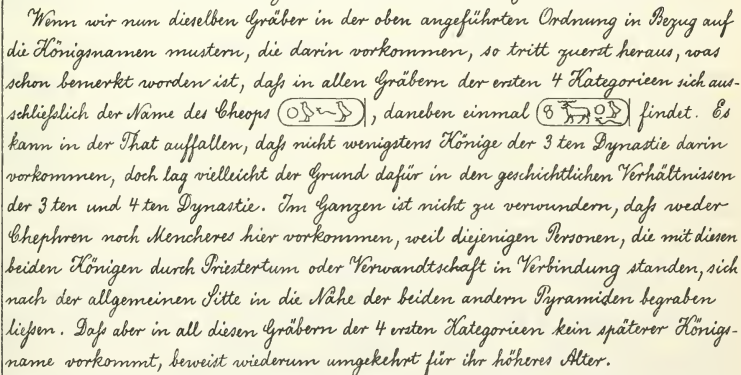 Wenn wir nun dieselben Gräber in der oben angeführten Ordnung in Bezug auf
die Königsnamen mustern, die darin vorkommen, so tritt zuerst heraus, was
schon bemerkt worden ist, daſs in allen Gräbern der ersten 4 Kategorieen sich aus-
schlieſslich der Name des Cheops, daneben einmal findet. Es
kann in der That auffallen, daſs nicht wenigstens Könige der 3ten Dynastie darin
vorkommen, doch lag vielleicht der Grund dafür in den geschichtlichen Verhältnissen
der 3ten und 4ten Dynastie. Im Ganzen ist nicht zu verwundern, daſs weder
Chephren noch Mencheres hier vorkommen, weil diejenigen Personen, die mit diesen
beiden Königen durch Priestertum oder Verwandtschaft in Verbindung standen, sich
nach der allgemeinen Sitte in die Nähe der beiden andern Pyramiden begraben
lieſsen. Daſs aber in all diesen Gräbern der 4 ersten Kategorieen kein späterer Königs-
name vorkommt, beweist wiederum umgekehrt für ihr höheres Alter.